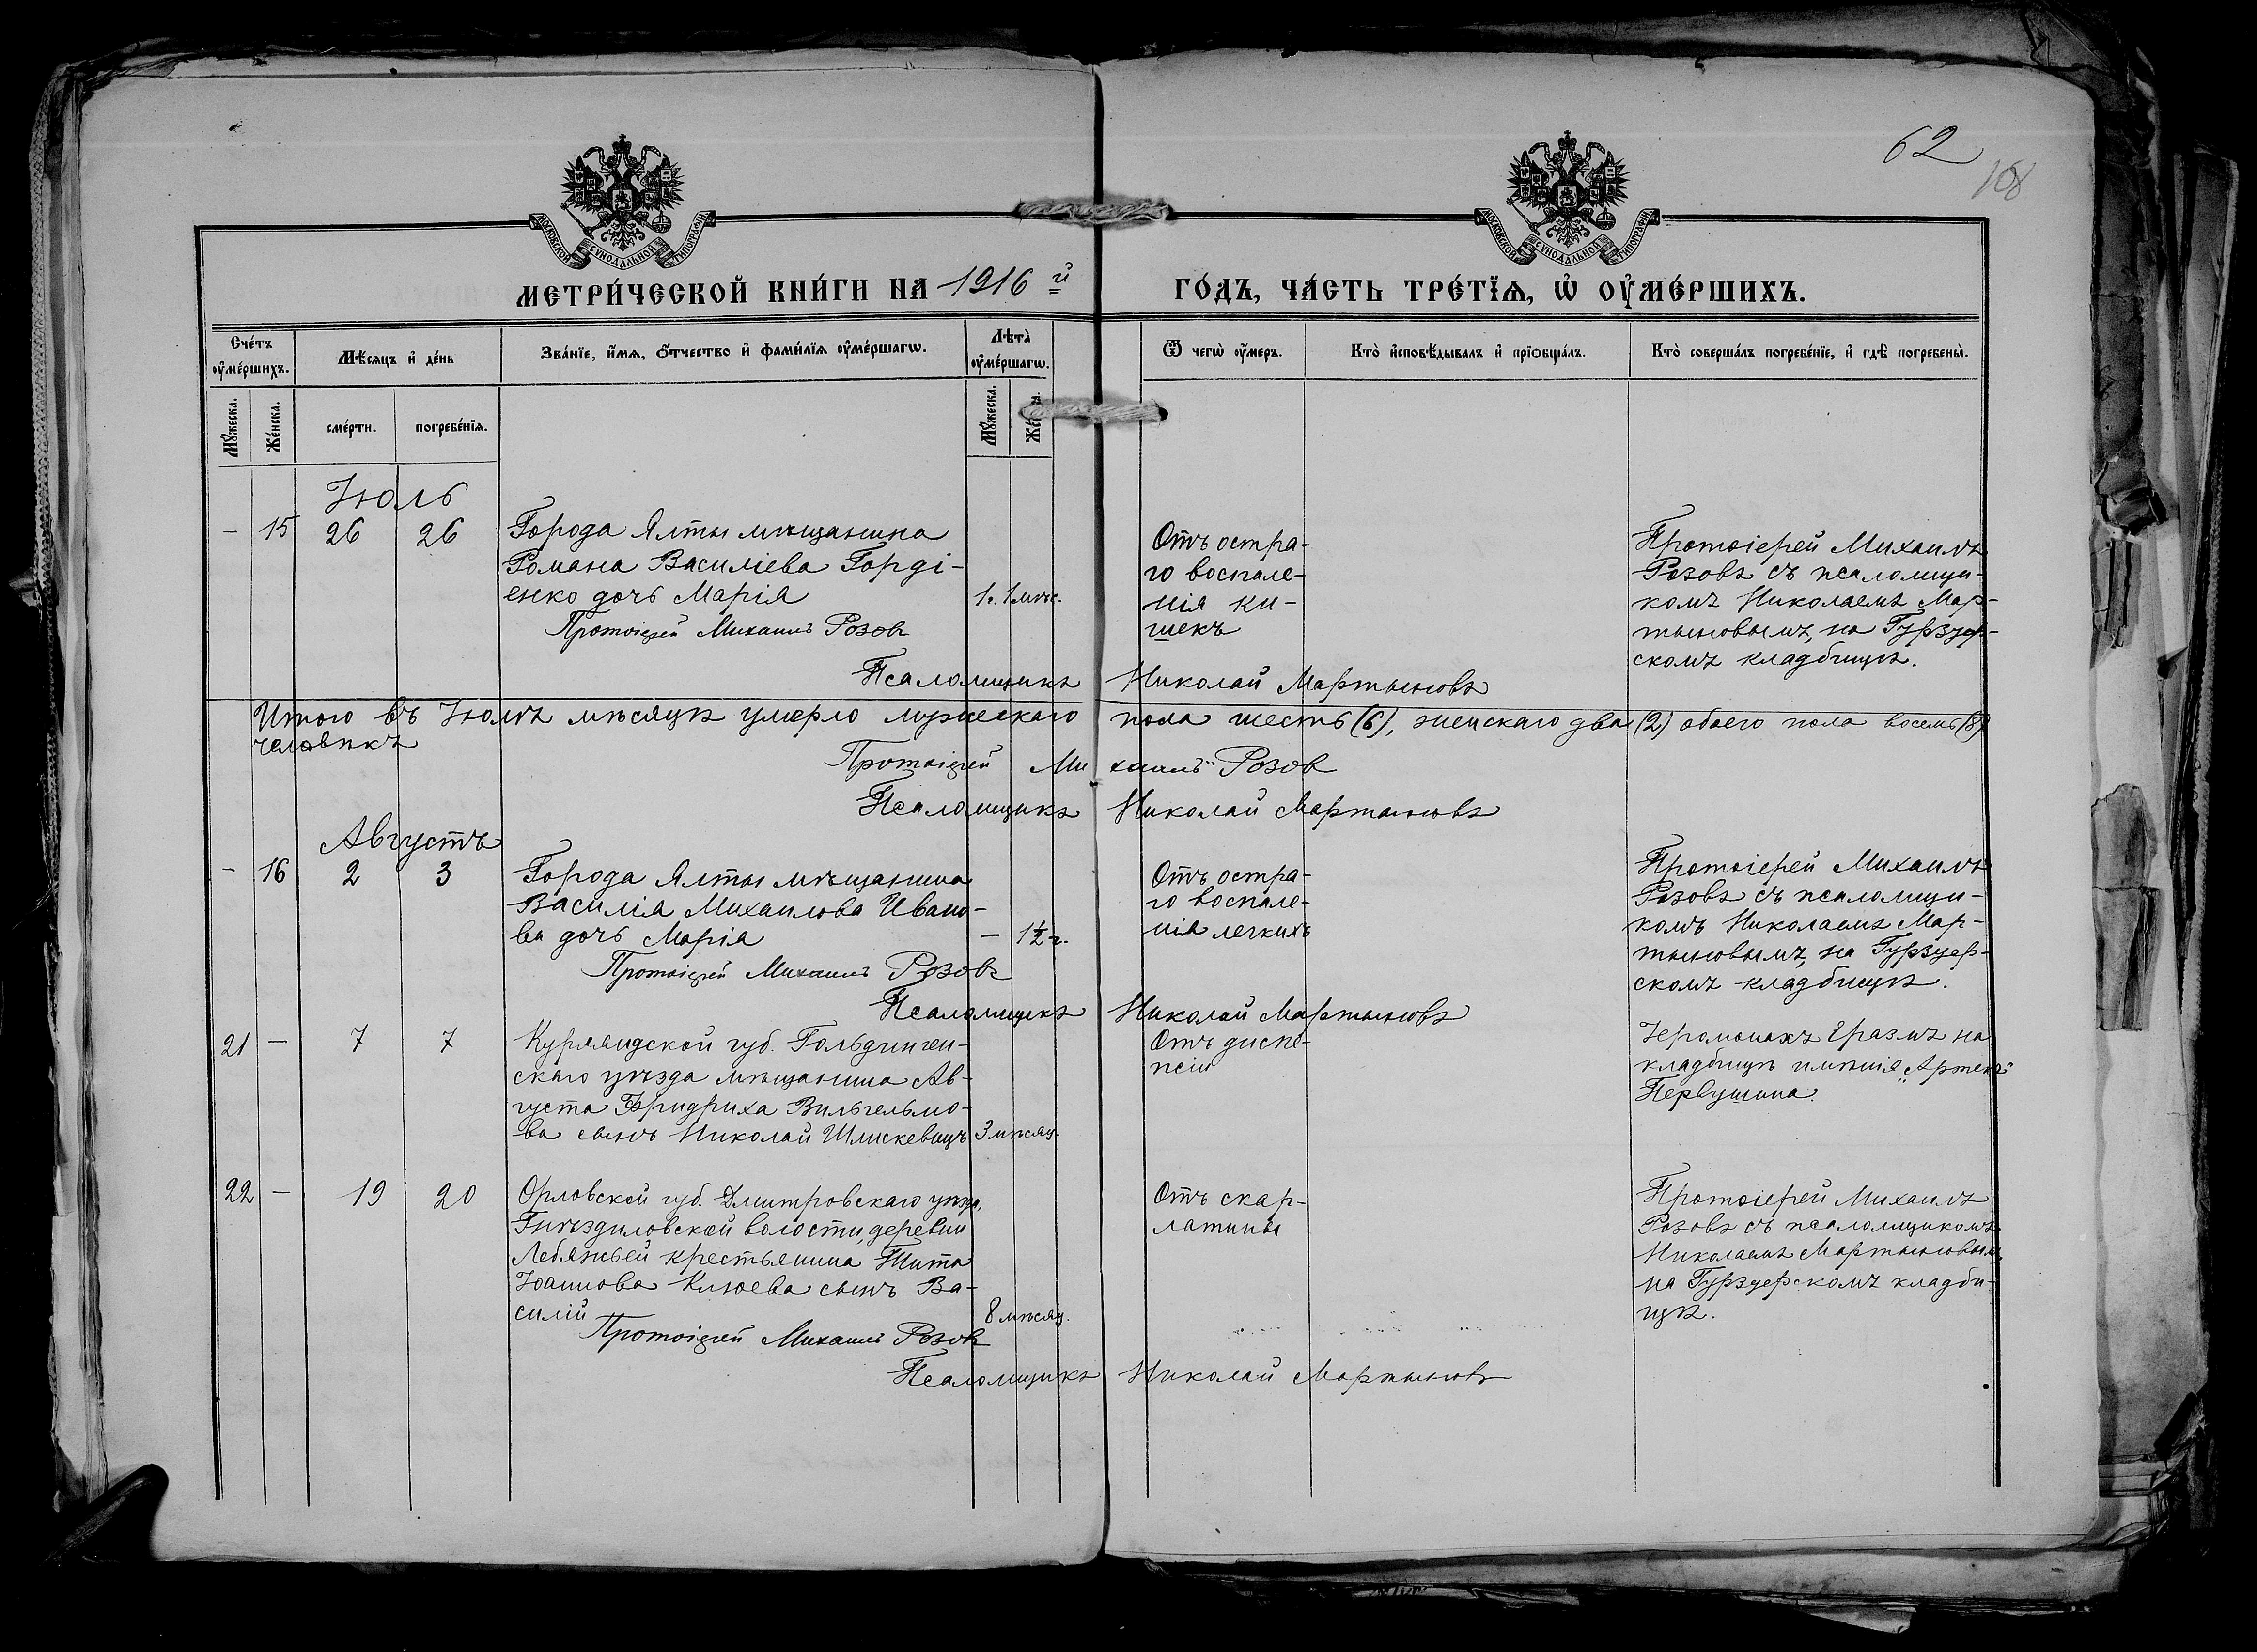 62
108
МОСКОВСКОЙ СѴНОДАЛЬНОЙ ТИПОГРАФІИ
МОСКОВСКОЙ СѴНОДАЛЬНОЙ ТИПОГРАФІИ
МЕТРИ́ЧЕСКОЙ КНИ́ГИ НА 1916й ГО́ДЪ, ЧА́СТЬ ТРЕ́ТЇѦ, Ѡ҆ ОУ҆МЕ́РШИХЪ.
Сче́тъ оу҆ме́ршихъ.
Мѣ́сяцъ и҆ де́нь
Зва́нїе, и҆́мѧ, ѻ҆́тчество и҆ фами́лїѧ оу҆ме́ршагѡ.
Лѣ́та оу҆ме́ршагѡ.
Ѿ чегѡ̀ оу҆́меръ.
Кто̀ и҆сповѣ́дывалъ и҆ прїѡбща́лъ.
Кто̀ соверша́лъ погребе́нїе, и҆ гдѣ̀ погребены̀.
Мꙋ́жеска.
Же́нска.
сме́рти.
погребе́нїѧ.
Мꙋ́жеска.
Іюль
— 15 26 26
Города Ялты мѣщанина
Романа Василіева Горді-
енко дочь Марія
1 г. 1 мѣс.
Протоіерей Михаилъ Розовъ
Отъ остра-
го воспале-
нія ки-
шекъ
Протоіерей Михаилъ
Розовъ съ псаломщи-
комъ Николаемъ Мар-
тыновымъ, на Гурзуф-
скомъ кладбищѣ.
Псаломщикъ Николай Мартыновъ
Итого въ Іюлѣ мѣсяцѣ умерло мужескаго пола шесть (6), женскаго два (2) обоего пола восемь (8)
человѣкъ
Протоіерей Михаилъ Розов
Псаломщикъ Николай Мартыновъ
Августъ
— 16 2 3
Города Ялты мѣщанина
Василія Михаилова Ивано-
ва дочь Марія
— 1½ г.
Протоіерей Михаилъ Розовъ
Отъ остра-
го воспале-
нія легкихъ
Протоіерей Михаилъ
Розовъ съ псаломщи-
комъ Николаемъ Мар-
тыновымъ, на Гурзуф-
скомъ кладбищѣ.
Псаломщикъ Николай Мартыновъ
21 — 7 7
Курляндской губ. Гольдинген-
скаго уѣзда мѣщанина Ав-
густа Фридриха Вильгельмо-
ва сынъ Николай Шлискевицъ
3 мѣсяц.
Отъ диспе-
псіи
Іеромонахъ Еразмъ на
кладбищѣ имѣнія „Артекъ"
Первушина.
22 — 19 20
Орловской губ. Дмитровскаго уѣзда,
Гнѣздиловской волости, деревни
Лебяжьей крестьянина Тита
Іоаннова Клюева сынъ Ва-
силій
8 мѣсяц.
Протоіерей Михаилъ Розовъ
Отъ скар-
латины
Протоіерей Михаилъ
Розовъ съ псаломщикомъ
Николаемъ Мартыновымъ,
на Гурзуфскомъ кладби-
щѣ.
Псаломщикъ Николай Мартыновъ